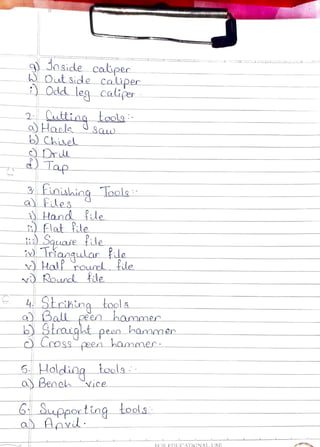 g) Inside caliper
h) Outside caliper
i) Odd leg caliper
2. Cutting tools :-
a) Hack saw
b) Chisel
c) Drill
d) Tap
3. Finishing Tools :-
a) Files
i) Hand file
ii) Flat file
iii) Square file
iv) Triangular file
v) Half round file
vi) Round file
4. Striking tools
a) Ball peen hammer
b) Straight peen hammer
c) Cross peen hammer.
5. Holding tools :-
a) Bench vice
6. Supporting tools
a) Anvil.
FOR EDUCATIONAL USE